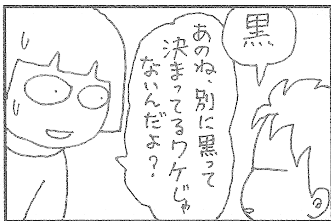 黒
あのね、別に黒って
決まってるワケじゃ
ないんだよ?